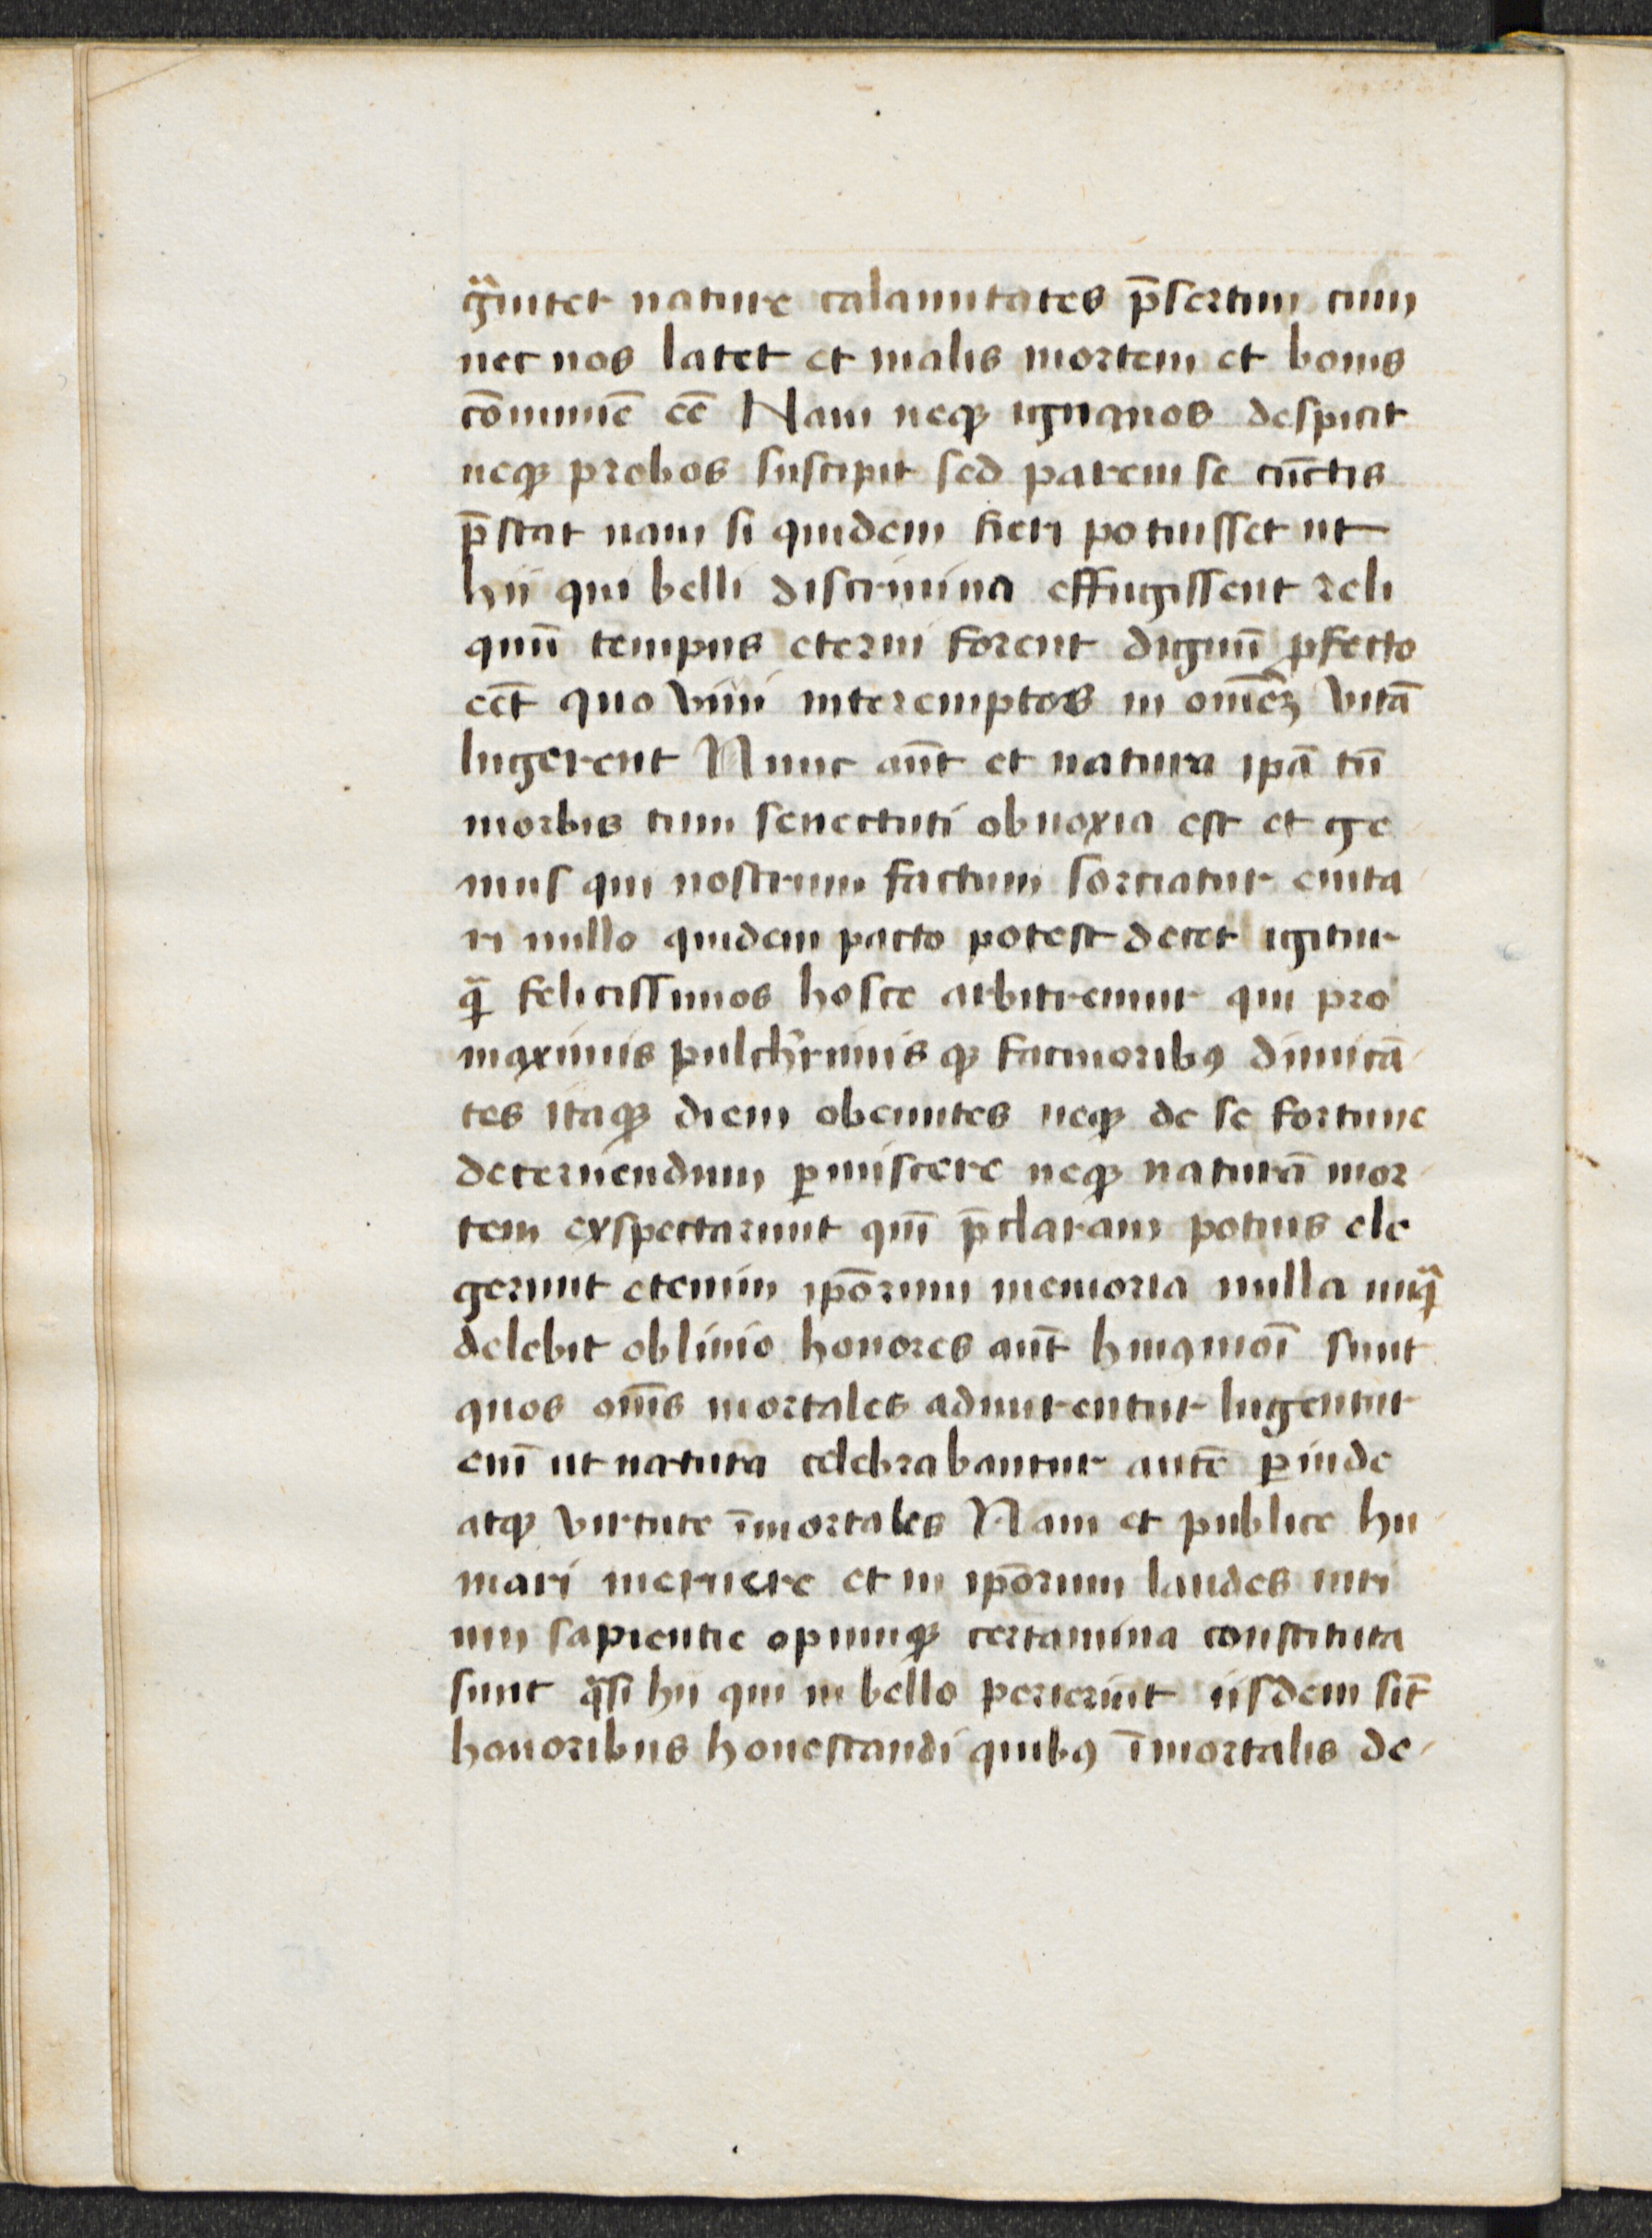 gͣuiter nature calamitates p̄sertim cum
nec nos latet et malis mortem et bonis
cōmunē eē Nam neqꝫ ignauos despicit
neqꝫ probos suscipit sed parem se cūctis
p̄stat nam si quidem fieri potuisset ut
hii qui belli discrimina effugissent reli
quū tempus eterni forent dignū ꝓfecto
eēt quo viui interemptos in omēꝫ vitā
lugerent Nunc aūt et natura ipā tū
morbis tum senectuti obnoxia est et ge
nius qui nostrum factum sorciatur euita
ri nullo quidem pacto potest decet igitur
qͣ felicissimos hosce arbitremur qui pro
maximis pulcherrimis qꝫ facinoribꝰ dimicā
tes itaqꝫ diem obeuntes neqꝫ de se fortune
decernendum ꝑmiscere neqꝫ naturā mor
tem exspectarunt quī p̄claram potius ele
gerunt etenim ipōrum memoria nulla unqͣ
delebit obliuio honores aūt huiꝰmōi sunt
quos om̄s mortales admirentur lugentur
enī ut natura celebrabantur autē ꝑinde
atqꝫ virtute īmortales Nam et publice hu
mari meruere et in ipōrum laudes uiri
um sapientie opumqꝫ certamina constituta
sunt qͣsi hii qui in bello perierint iisdem sīt
honoribus honestandi quibꝰ īmortalis de